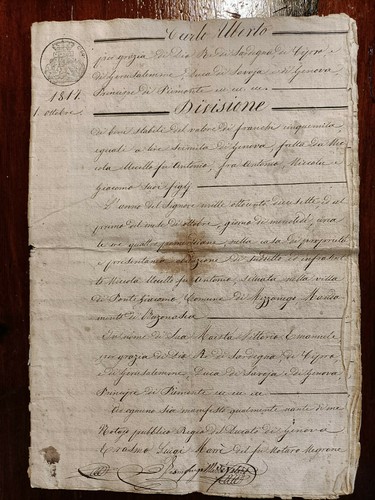 Carlo Alberto
per grazia di Dio Re di Sardegna di Cipro e
di Gerusalemme, Duca di Savoja e di Genova
Principe di Piemonte ec. ec. ec.
1817
1. ottobre
Divisione
Di beni stabili del valore di franchi cinquemila
eguale a lire seimila di Genova, fatta da Nic
cola Musello fu Antonio, fra Antonio, Niccola e
Giacomo suoi figlj
L'anno del Signore mille ottocento dieci sette il dì
primo del mese di ottobre, giorno di mercoledì, circa
le ore quattro nella casa di proprietà
e presentanea abitazione di
Niccola Musello fu Antonio, situata nella villa
di Ponte Giacomo, Comune di Mezzanego Manda
mento di Borzonasca
In nome di Sua Maestà Vittorio Emanuele
per grazia di Dio Re di Sardegna di Cipro
e di Gerusalemme, Duca di Savoja e di Genova
Principe di Piemonte ec. ec. ec.
Ad ognuno sia manifesto qualmente nanti di me
Notajo pubblico Regio del Ducato di Genova
Erasmo Luigi del fu Notaro Negrone